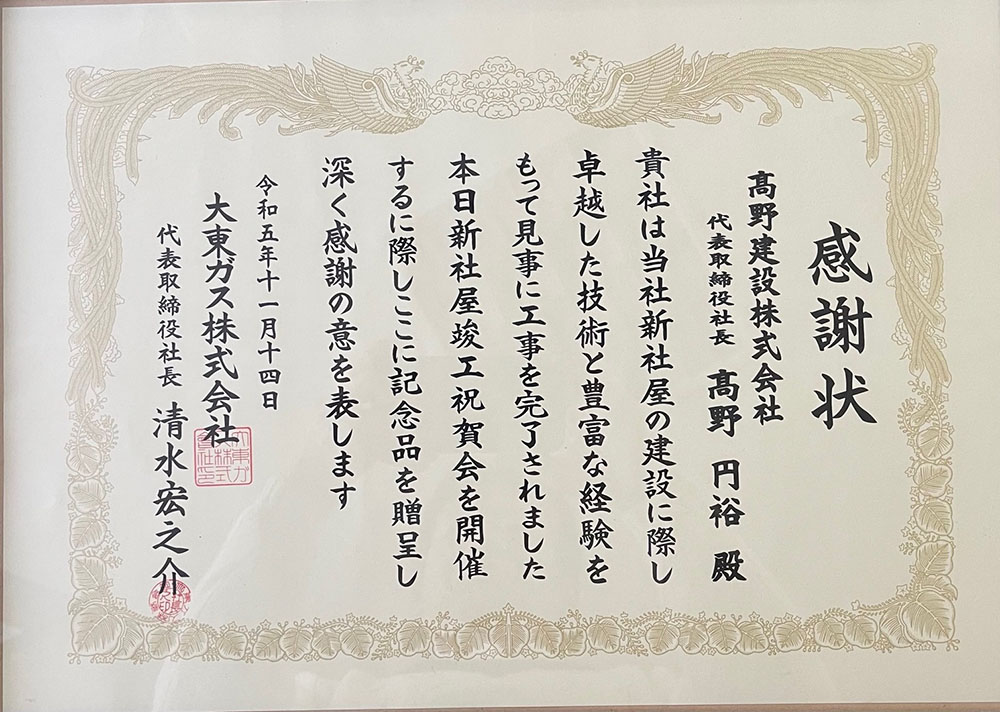 感謝状
髙野建設株式会社
代表取締役社長 髙野 円裕 殿
貴社は当社新社屋の建設に際し
卓越した技術と豊富な経験を
もって見事に工事を完了されました
本日新社屋竣工祝賀会を開催
するに際しここに記念品を贈呈し
深く感謝の意を表します
令和五年十一月十四日
大東ガス株式会社
代表取締役社長 清水宏之介